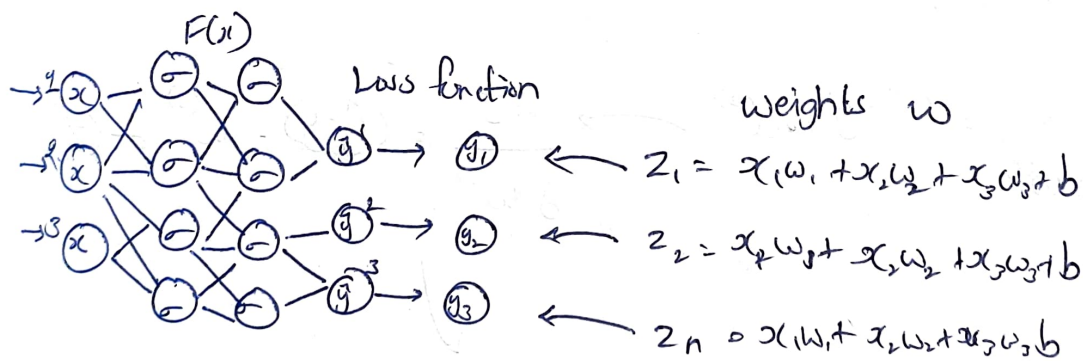 F(x)
Loss function
weights w
1 x σ σ
2 x σ σ ȳ 1 y₁
z₁ = x₁w₁ + x₂w₂ + x₃w₃ + b
3 x σ σ ȳ 2 y₂
z₂ = x₂w₃ + x₂w₂ + x₃w₃ + b
σ σ ȳ 3 y₃
zₙ = x₁w₁ + x₂w₂ + x₃w₃ b